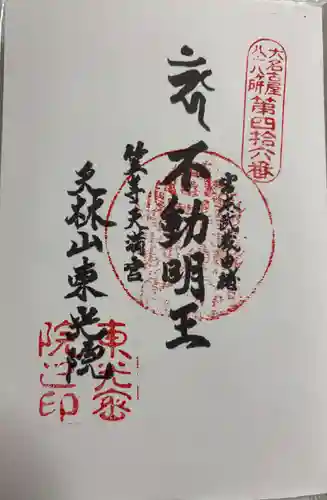 大名古屋
八十八ヶ所
第四拾六番
宮本武蔵由緒
不動明王
笠寺天満宮
天林山東光院
東光密
院之印